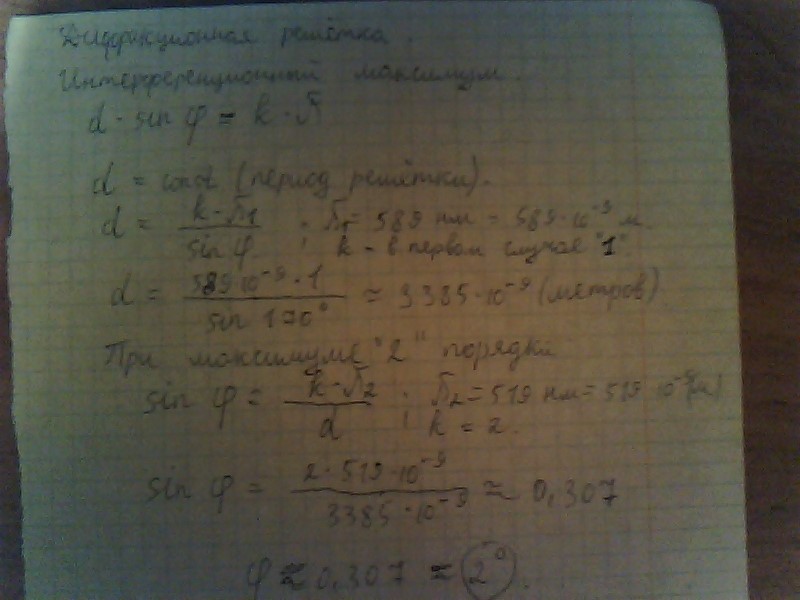 Дифракционная решётка.
Интерференционный максимум.
d · sin φ = k · λ
d = const (период решётки).
d = k · λ1 / sin φ ; λ1 = 589 нм = 589 · 10⁻⁹ м.
k – в первом случае "1".
d = 589 · 10⁻⁹ · 1 / sin 170° ≈ 3385 · 10⁻⁹ (метров)
При максимуме "2" порядка
sin φ = k · λ2 / d ; λ2 = 519 нм = 519 · 10⁻⁹ (м)
k = 2.
sin φ = 2 · 519 · 10⁻⁹ / 3385 · 10⁻⁹ ≈ 0,307
φ ≈ 0,307 ≈ 2°.